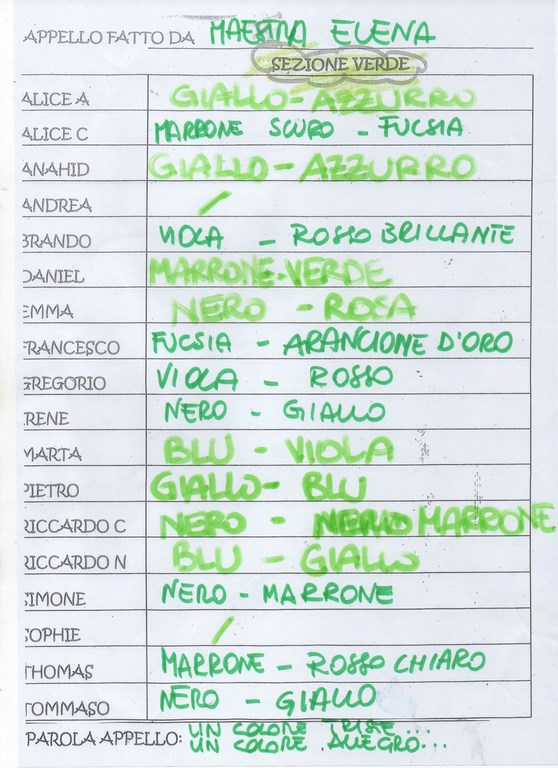 APPELLO FATTO DA MAESTRA ELENA
SEZIONE VERDE
ALICE A GIALLO - AZZURRO
ALICE C MARRONE SCURO - FUCSIA
ANAHID GIALLO - AZZURRO
ANDREA /
BRANDO VIOLA - ROSSO BRILLANTE
DANIEL MARRONE - VERDE
EMMA NERO - ROSA
FRANCESCO FUCSIA - ARANCIONE D'ORO
GREGORIO VIOLA - ROSSO
IRENE NERO - GIALLO
MARTA BLU - VIOLA
PIETRO GIALLO - BLU
RICCARDO C NERO - MARRONE
RICCARDO N BLU - GIALLO
SIMONE NERO - MARRONE
SOPHIE /
THOMAS MARRONE - ROSSO CHIARO
TOMMASO NERO - GIALLO
PAROLA APPELLO: UN COLORE TRISTE...
UN COLORE ALLEGRO...